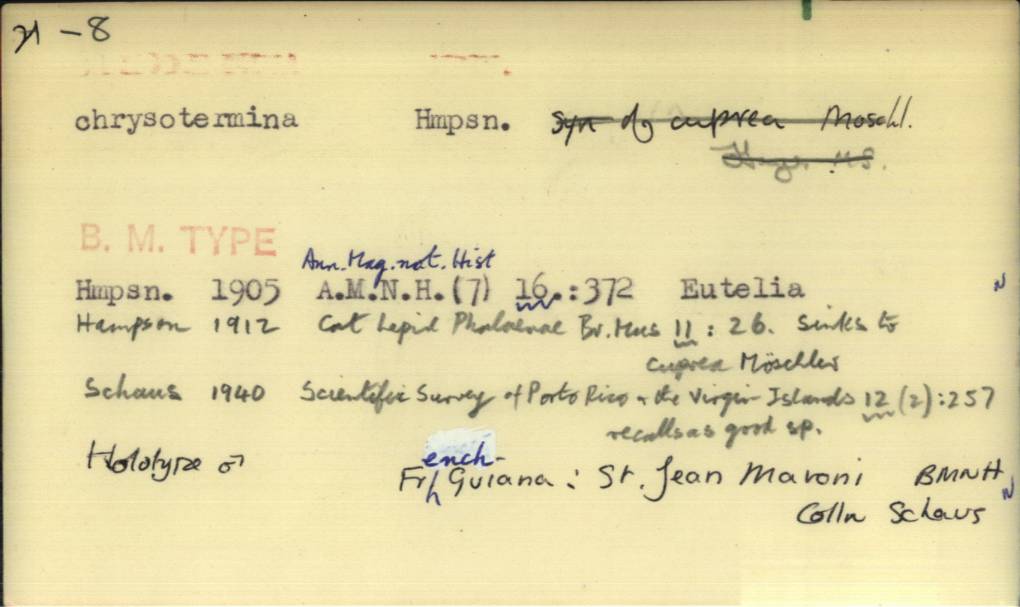 21 - 8
chrysotermina Hmpsn. Syn of cuprea Moschl.
B. M. TYPE
Ann. Mag. nat. Hist
Hmpsn. 1905 A.M.N.H.(7) 16.:372 Eutelia N
Hampson 1912 Cat Lepid Phalaenae Br. Mus 11 : 26. sinks to
cuprea Möschler
Schaus 1940 Scientific Survey of Porto Rico & the Virgin Islands 12 (2):257
recalls as good sp.
ench
Holotype ♂ Fr h Guiana : St. Jean Maroni BMNH N
Colln Schaus